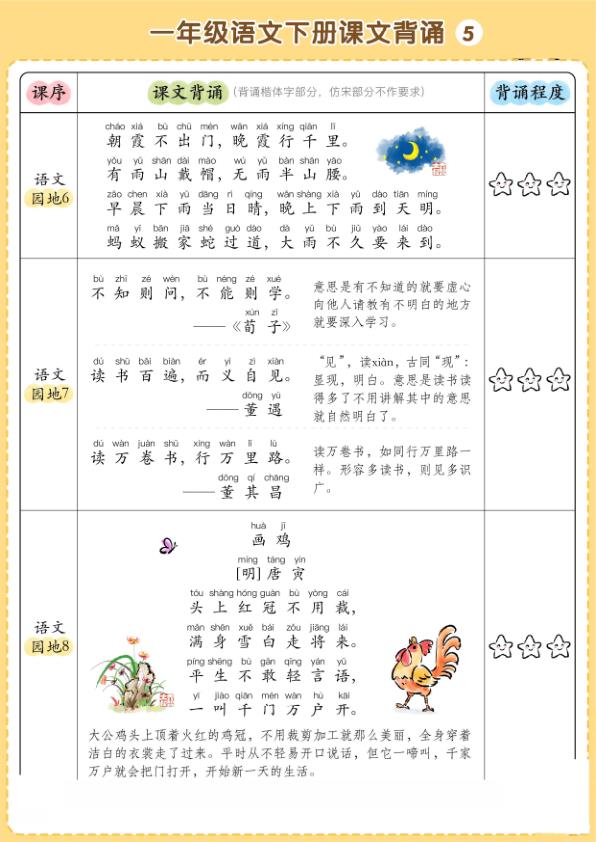 一年级语文下册课文背诵 5
课序
课文背诵（背诵楷体字部分，仿宋部分不作要求）
背诵程度
语文
园地6
zhāo xiá bù chū mén wǎn xiá xíng qiān lǐ
朝 霞 不 出 门，晚 霞 行 千 里。
yǒu yǔ shān dài mào wú yǔ bàn shān yāo
有 雨 山 戴 帽，无 雨 半 山 腰。
zǎo chen xià yǔ dāng rì qíng wǎn shàng xià yǔ dào tiān míng
早 晨 下 雨 当 日 晴，晚 上 下 雨 到 天 明。
mǎ yǐ bān jiā shé guò dào dà yǔ bù jiǔ yào lái dào
蚂 蚁 搬 家 蛇 过 道，大 雨 不 久 要 来 到。
语文
园地7
bù zhī zé wèn bù néng zé xué
不 知 则 问，不 能 则 学。
xún zǐ
——《荀 子》
意思是有不知道的就要虚心
向他人请教有不明白的地方
就要深入学习。
dú shū bǎi biàn ér yì zì xiàn
读 书 百 遍，而 义 自 见。
dǒng yù
—— 董 遇
“见”，读xiàn，古同“现”：
显现，明白。意思是读书读
得多了不用讲解其中的意思
就自然明白了。
dú wàn juàn shū xíng wàn lǐ lù
读 万 卷 书，行 万 里 路。
dǒng qí chāng
—— 董 其 昌
读万卷书，如同行万里路一
样。形容多读书，则见多识
广。
语文
园地8
huà jī
画 鸡
míng táng yín
[明] 唐 寅
tóu shàng hóng guān bù yòng cái
头 上 红 冠 不 用 裁，
mǎn shēn xuě bái zǒu jiāng lái
满 身 雪 白 走 将 来。
píng shēng bù gǎn qīng yán yǔ
平 生 不 敢 轻 言 语，
yí jiào qiān mén wàn hù kāi
一 叫 千 门 万 户 开。
大公鸡头上顶着火红的鸡冠，不用裁剪加工就那么美丽，全身穿着
洁白的衣裳走了过来。平时从不轻易开口说话，但它一啼叫，千家
万户就会把门打开，开始新一天的生活。